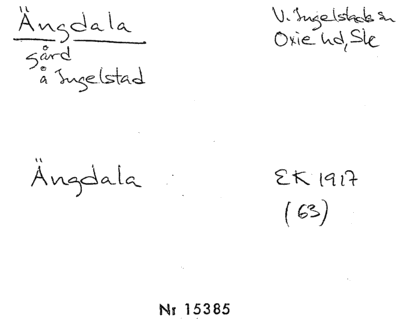 Ängdala
gård
å Ingelstad
V. Ingelstads sn
Oxie hd, Sk
Ängdala
EK 1917
(63)
Nr 15385